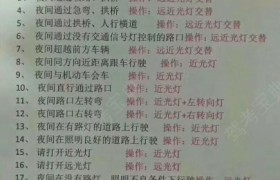 4、夜间通过急弯、拱桥 操作：远近光灯交替
5、夜间通过拱桥、人行横道 操作：远近光灯交替
6、夜间通过没有交通信号灯控制的路口操作：远近光灯交替
7、夜间超越前方车辆 操作：远近光灯交替
8、夜间同方向近距离跟车行驶 操作：近光灯
9、夜间与机动车会车 操作：近光灯
10、夜间直行通过路口 操作：近光灯
11、夜间路口左转弯 操作：近光灯+左转向灯
12、夜间路口右转弯 操作：近光灯+右转向灯
13、夜间在有路灯的道路上行驶 操作：近光灯
14、夜间在照明良好的道路上行驶 操作：近光灯
15、请打开近光灯 操作：近光灯
16、请打开远光灯 操作：远光灯
17、夜间在没有路灯、照明不良条件下行驶 操作：远光灯